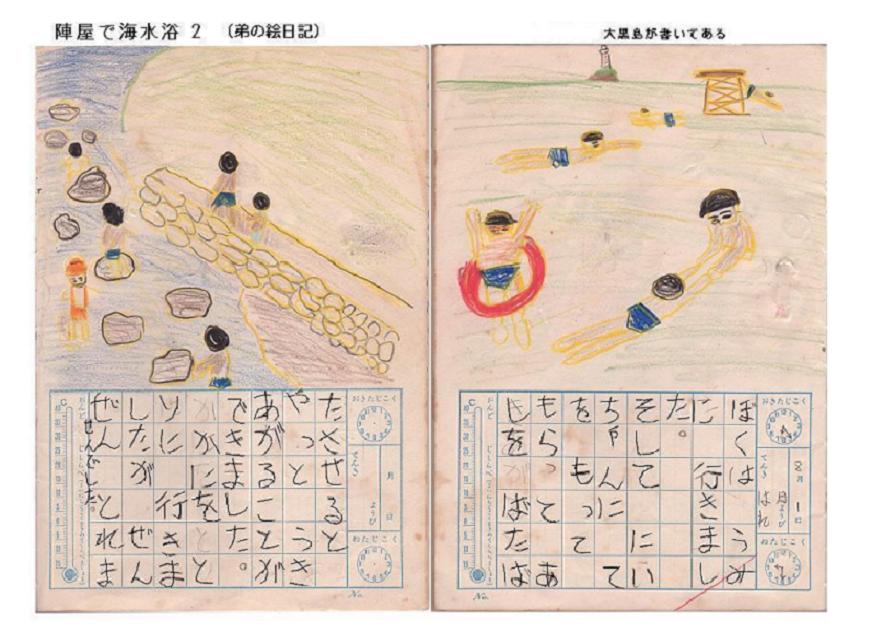 陣屋で海水浴 2 〔弟の絵日記〕
大黒島が書いてある
おきたじこく
8月1日
ようび
てんき はれ
ねたじこく
ぼくは うみ
に 行きまし
た。
そして にい
ちゃんに て
をもって
もらって あ
しをばたば
No.
おきたじこく
月 日
ようび
てんき
ねたじこく
たさせると
やっとうき
あがることが
できました。
かにをと
りに行きま
したがぜん
ぜんとれま
せんでした。
No.